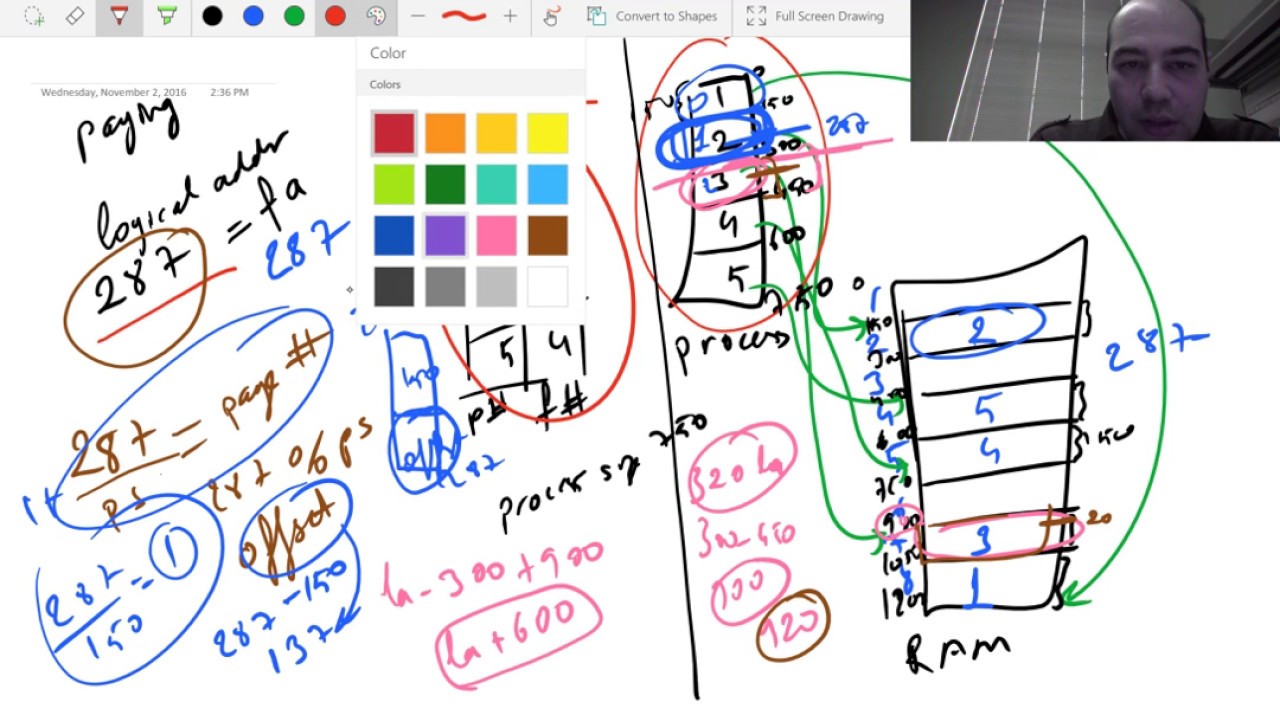 Convert to Shapes
Full Screen Drawing
Color
Colors
Wednesday, November 2, 2016
2:36 PM
paying
logical addr
287 = fa
287
287 = page #
ps
287 % ps
offset
287 = 1
150
287 - 150
137
150
287
5 4
p# f#
process sz 750
la - 300 + 900
la + 600
320 la
920
1
150
2
287
300
3
450
4
600
5
750
process
0
1
150
2
2
3
5
4
4
150
5
750
900
3
20
1050
8
1
1200
287
RAM